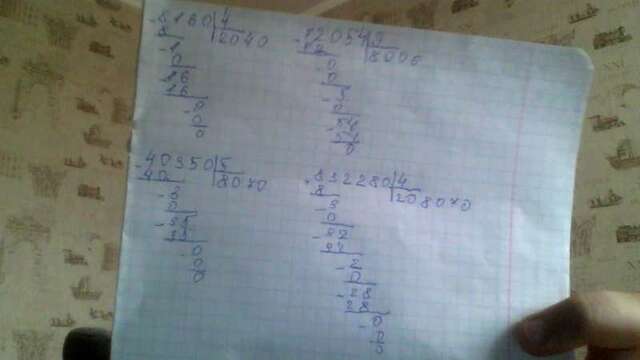 -8160|4
8 |2040
-1
0
-16
16
-0
0
0
-72054|9
72 |8006
-0
0
-5
0
-54
54
0
-40350|5
40 |8070
-3
0
-35
35
-0
0
0
-832280|4
8 |208070
-3
0
-32
32
-2
0
-28
28
-0
0
0